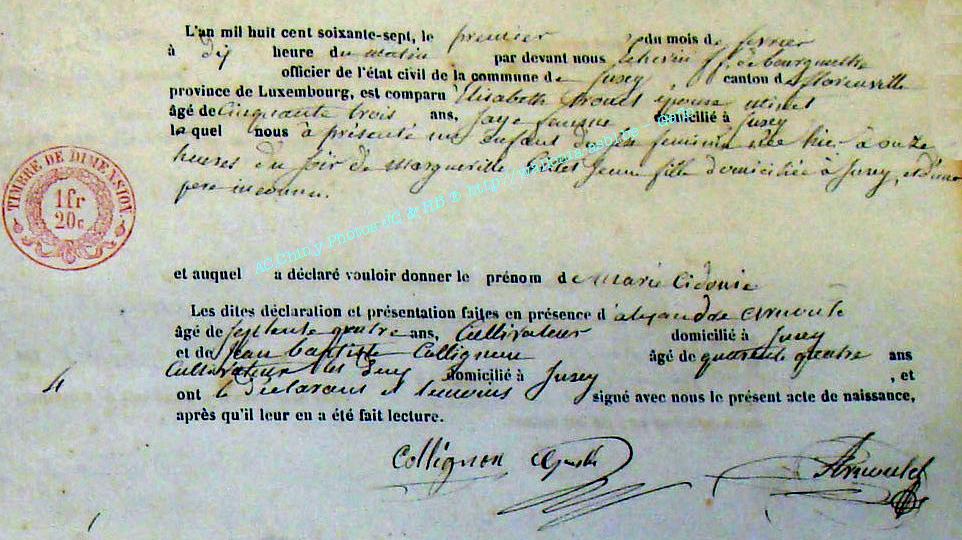 L'an mil huit cent soixante-sept, le premier du mois de fevrier
à Dix heure du matin par devant nous ff. de bourgmestre
officier de l'état civil de la commune de canton de florenville
province de Luxembourg, est comparu Elisabeth épouse
âgé de Cinquante trois ans, domicilié à
laquel nous à présenté un Enfant du feminin née hier à onze
heures du soir de Marguerite fille domiciliée à et d'un
pere inconnu.
TIMBRE DE DIMENSION.
1fr
20c.
AC Chiny Photos JC & HB © http://
et auquel a déclaré vouloir donner le prénom de Marie Cidonie
Les dites déclaration et présentation faites en présence d'alexandre
âgé de septente quatre ans, Cultivateur domicilié à
et de Jean baptiste Collignon âgé de quarente quatre ans
Cultivateur domicilié à , et
ont le Déclarant et temoins signé avec nous le présent acte de naissance,
après qu'il leur en a été fait lecture.
4
Collignon